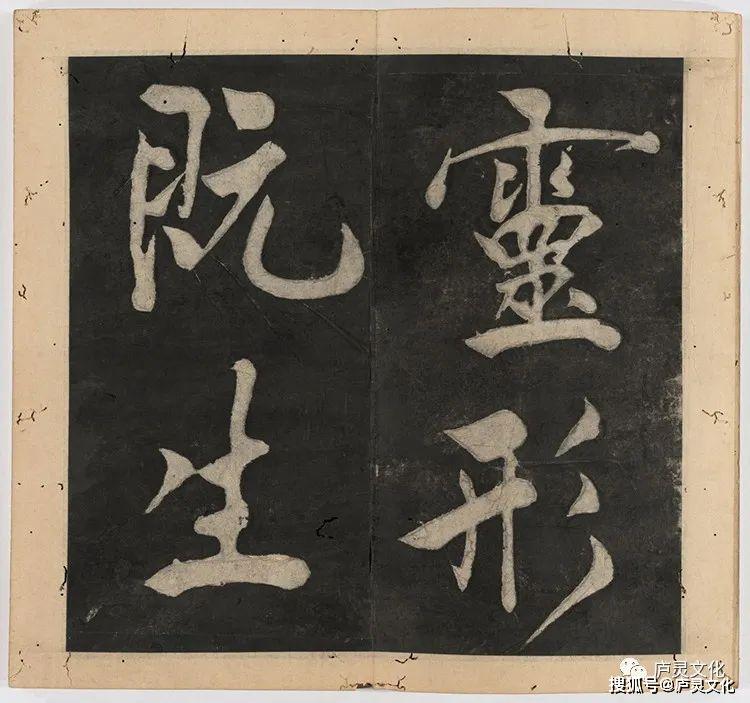 靈形
既生
庐灵文化
搜狐号@庐灵文化